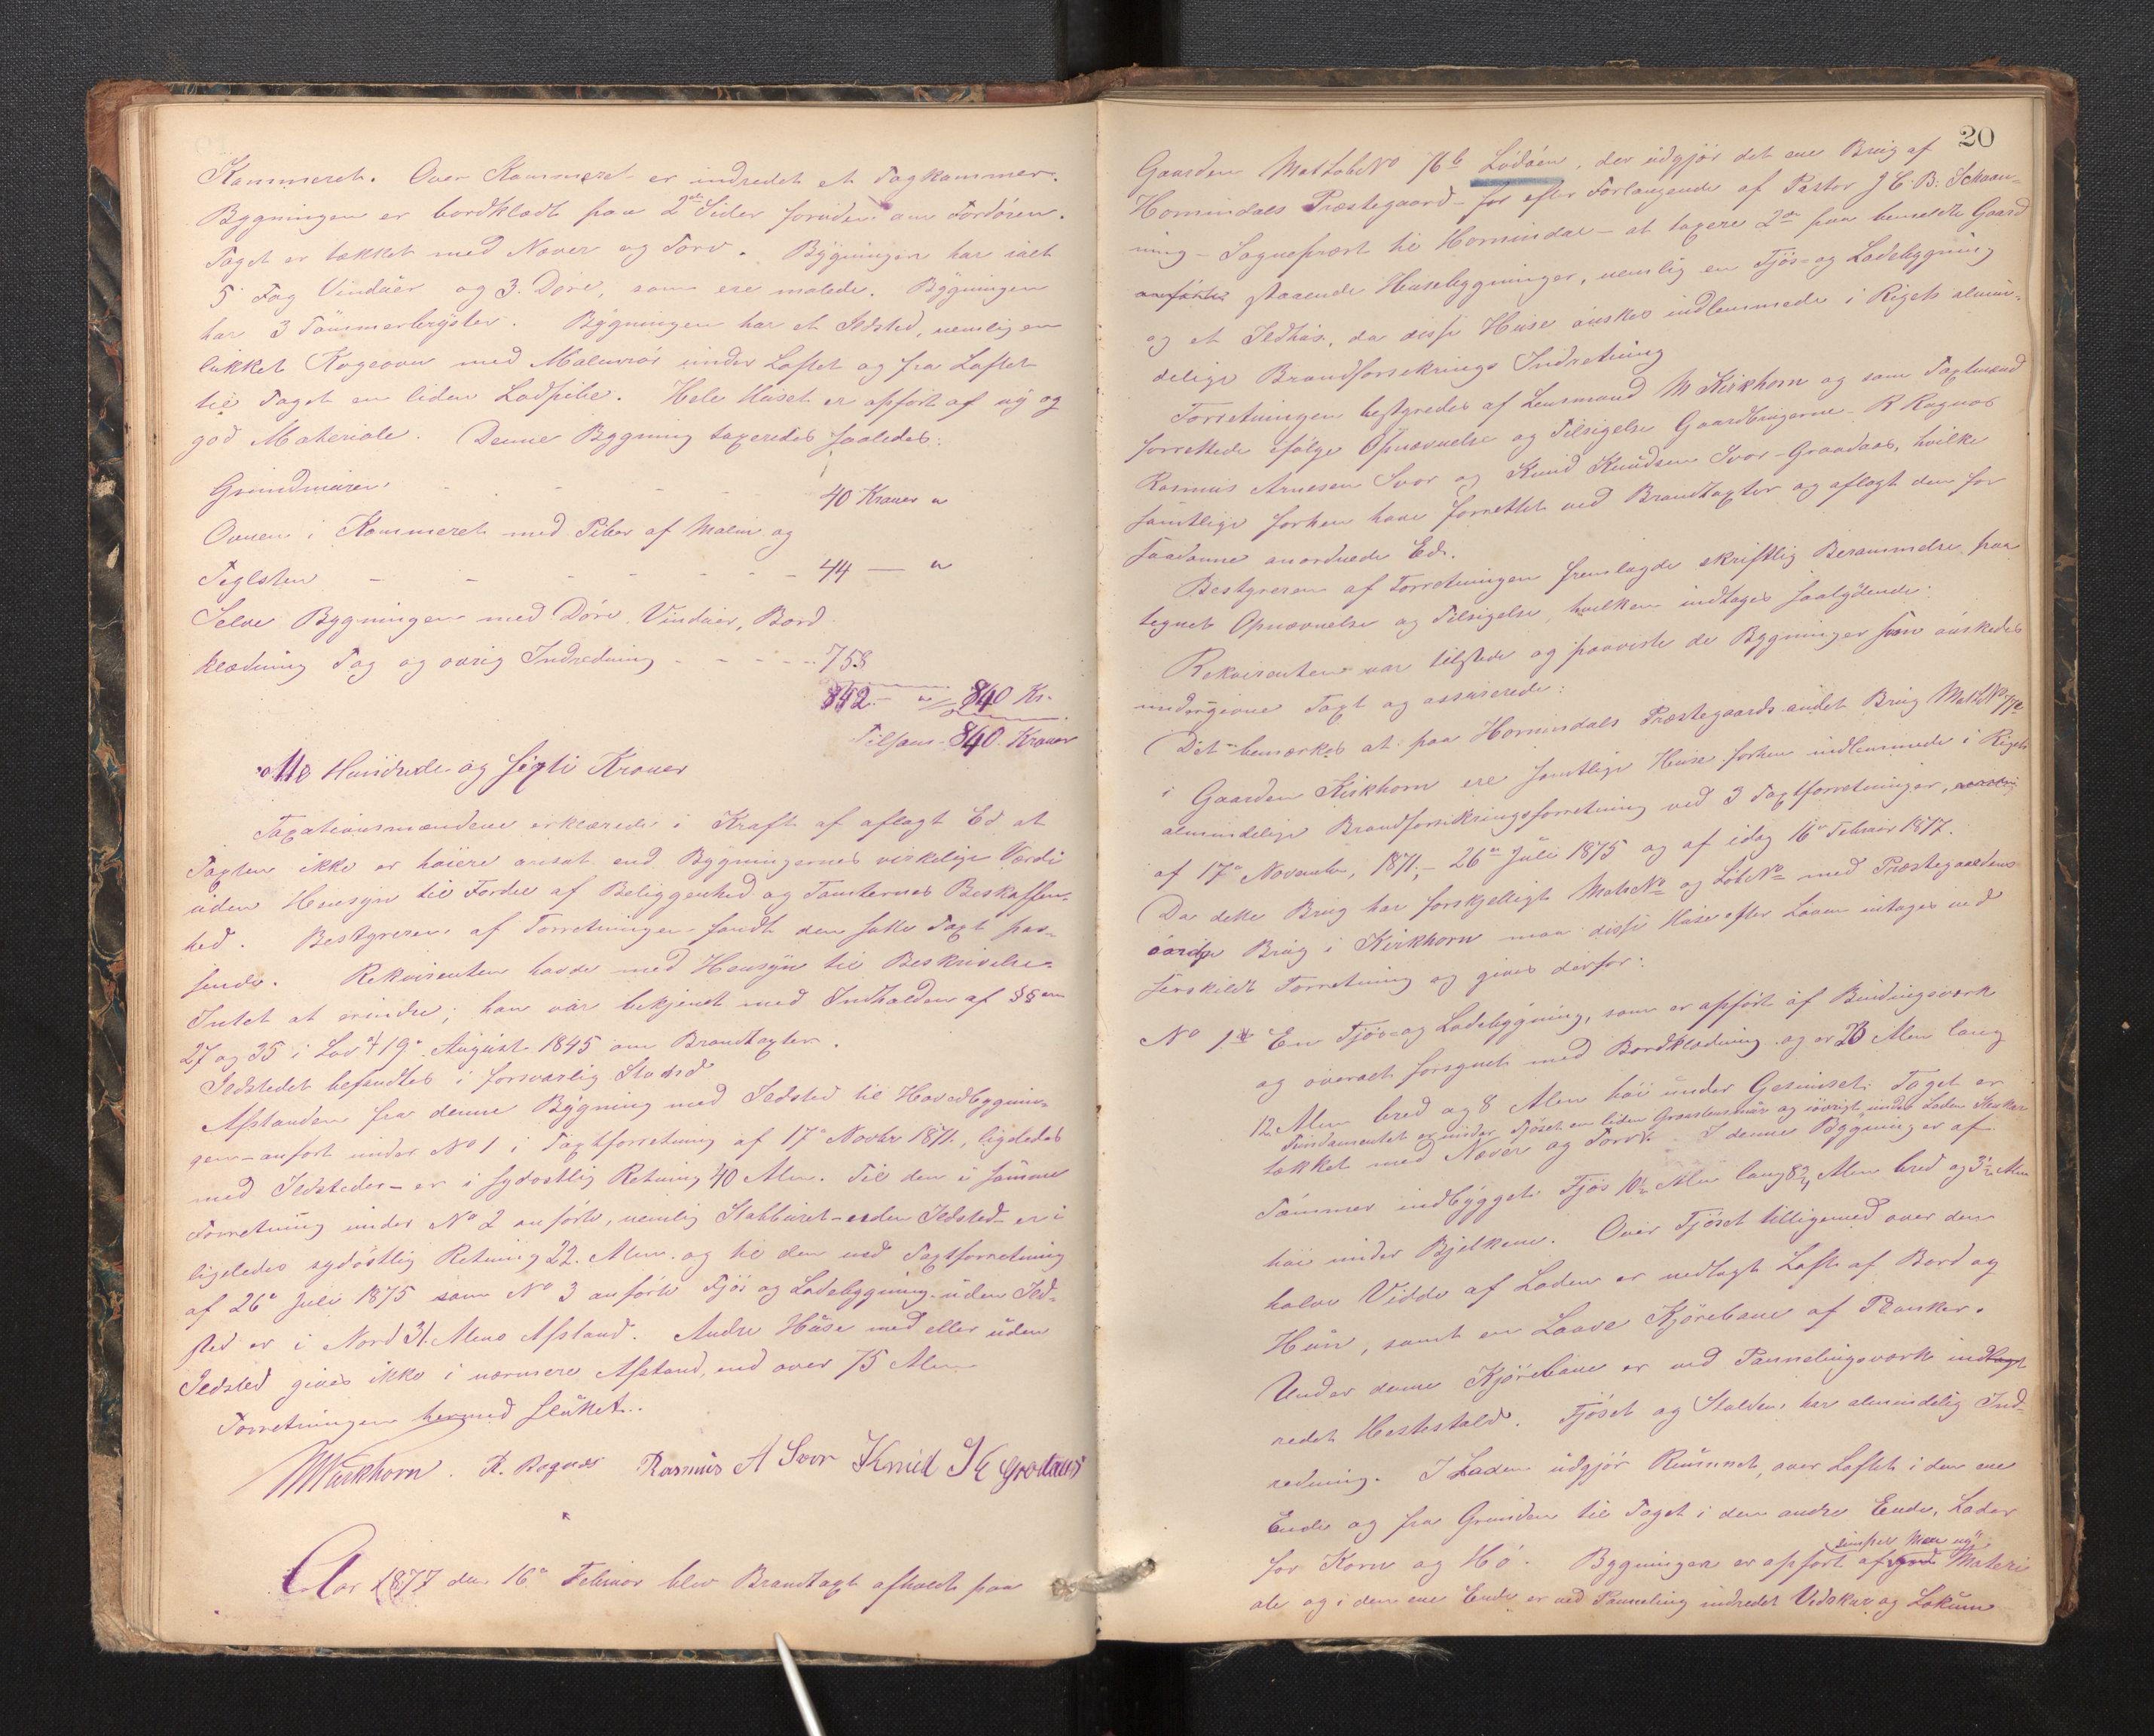 Kammeret. Over Kammeret er indredet et Tagkammer.
Bygningen er bordklædt paa 2de Sider foruden om Fordören.
Taget er tækket med Næver og Torv. Bÿgningen har ialt
5 Fag Vinduer og 3 Döre, som ere malede. Bÿgningen
har 3 Tömmerbryster. Bÿgningen har et Ildsted, nemlig en
lukket Kogeovn med Malmrör under Loftet og fra Loftet
til Taget en liden Ladpibe. Hele Huset er opfört af nÿ og
god Materiale. Denne Bygning taxeredes saaledes:
Grundmuren - - - - 40 Kroner "
Ovnen i Kammeret med Piber af Malm og
Teglsten - - - - - - - 44 — "
Selve Bygningen med Döre, Vinduer, Bord
klædning Tag og övrig Indredning - - - - - 758
842 - " 840 Kr.
Tilsam- 840. Kroner
otte Hundrede og firti Kroner
Taxationsmændene erklærede i Kraft af aflagt Ed at
Taxten ikke er höiere ansat end Bygningernes virkelige Værdi
uden Hensyn til Fordel af Beliggenhed og Tomternes Beskaffen-
hed. Bestyreren af Forretningen fandt den satte Taxt pas-
sende. Rekvirenten havde med Hensyn til Beskrivelse
Intet at erindre; han var bekjendt med Indholden af §§erne
27 og 35 i Lov af 19de August 1845 om Brandtaxter.
Ildstedet befandtes i forsvarlig Stand
Afstanden fra denne Bÿgning med Ildsted til Hovedbygnin-
gen - anfört under No 1 i Taxtforretning af 17de Novbr 1871, ligeledes
med Ildsteder - er i sydostlig Retning 40 Alen. Til den i samme
Forretning under No 2 anförte, nemlig Stabburet - uden Ildsted - er i
ligeledes sydöstlig Retning 22. Alen. og til den ved Taxtforretning
af 26de Juli 1875 som No 3 anförte Fjös og Ladebygning uden Ild-
sted er i Nord 31. Alens Afstand. Andre Huse med eller uden
Ildsted gives ikke i nærmere Afstand, end over 75 Alen
Forretningen hermed sluttet.
MKirkhorn. R. Rognes Rasmus A Svor Knud K Grodaas
Aar 1877 den 16de Februar blev Brandtaxt afholdt paa
20
Gaarden Mat Löb No 76b Lödöen, der udgjör det ene Brug af
Hornindals Præstegaard - for efter Forlangende af Pastor J C. B. Schaan-
ning - Sogneprest til Hornindal - at taxere 2de paa bemeldte Gaard
anförte staaende Husebygninger, nemlig en Fjös- og Ladebygning
og et Ildhus, da disse Huse önskes indlemmede i Rigets almin-
delige Brandforsikrings Indretning
Forretningen bestyredes af Lensmand M Kirkhorn og som Taxtmænd
forrettede ifölge Opnævnelse og Tilsigelse Gaardbrugerne R Rognes
Rasmus Arnesen Svor og Knud Knudsen Svor-Graadaas, hvilke
samtlige forhen have forrettet ved Brandtaxter og aflagt den for
saadanne anordnede Ed.
Bestyreren af Forretningen fremlagde skriftlig Berammelse paa
tegnet Opnævnelse og Tilsigelse, hvilken indtages saalydende:
Rekvirenten var tilstede og paaviste de Bygninger som önskedes
undergivne Taxt og assurerede:
Det bemærkes at paa Hornindals Præstegaards andet Brug Mat LNo 77a
i Gaarden Kirkhorn ere samtlige Huse forhen indlemmede i Rigets
almindelige Brandforsikringsforretning ved 3 Taxtforretninger,
af 17de November, 1871, - 26de Juli 1875 og af idag 16de Februar 1877.
Da dette Brug har forskjelligt Mat No og Löb No med Præstegaardens
övrige Brug i Kirkhorn maa disse Huse efter Loven intages ved
særskildt Forretning og gives derfor:
No 1 En Fjös- og Ladebÿgning, som er opfört af Bindingsværk
og overalt forsynet med Bordklædning og er 28 Alen lang
12 Alen bred og 8 Alen höi under Gesimset. Taget er
Fundamentet er under Fjöset en liden Graastensmur og iövrigt under Laden Stolper
tækket med Næver og Torv. I denne Bÿgning er af
Tömmer indbÿgget Fjös 10½ Alen lang 8½ Alen bred og 3½ Alen
höi under Bjelkene. Over Fjöset tilligemed over den
halve Vidde af Laden er nedlagt Loft af Bord og
Hun, samt en Laave Kjörebane af Planker.
Under denne Kjörebane er ved Pannelingsværk indlagt
redet Hestestald. Fjöset og Stalden har almindelig Ind-
redning. I Laden udgjör Rummet, over Loftet i den ene
Ende og fra Grunden til Taget i den andre Ende, Lader
for Korn og Hö. Bygningen er opfört af god simpel Men nÿ Materi
ale og i den ene Ende er ved Panneling indredet Vedskur og Lokum